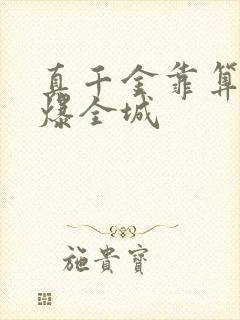 真千金靠算
爆全城
施貴寶